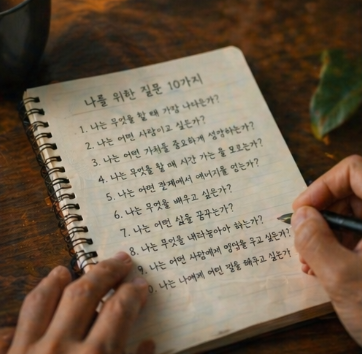 나를 위한 질문 10가지
1. 나는 무엇을 할 때 가장 나다운가?
2. 나는 어떤 사람이고 싶은가?
3. 나는 어떤 가치를 중요하게 생각하는가?
4. 나는 무엇을 할 때 시간 가는 줄 모르는가?
5. 나는 어떤 관계에서 에너지를 얻는가?
6. 나는 무엇을 배우고 싶은가?
7. 나는 어떤 삶을 꿈꾸는가?
8. 나는 무엇을 내려놓아야 하는가?
9. 나는 어떤 사람에게 영향을 주고 싶은가?
나는 나에게 어떤 말을 해주고 싶은가